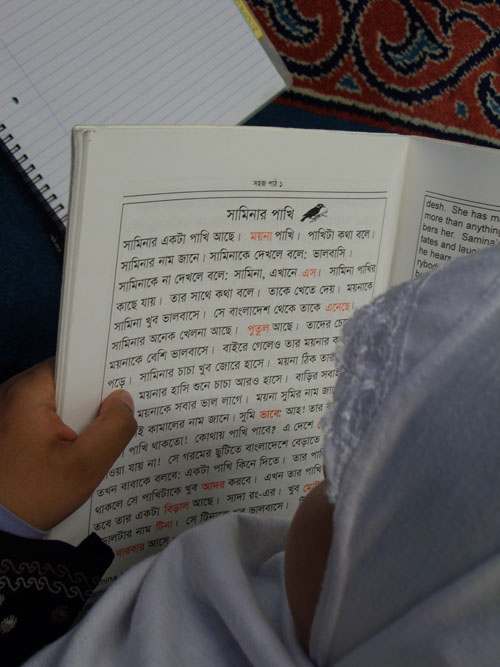 সহজ পাঠ ১
সামিনার পাখি
সামিনার একটা পাখি আছে। ময়না পাখি। পাখিটা কথা বলে।
সামিনার নাম জানে। সামিনাকে দেখলে বলে: ভালবাসি।
সামিনাকে না দেখলে বলে: সামিনা, এখানে এস। সামিনা পাখির
কাছে যায়। তার সাথে কথা বলে। তাকে খেতে দেয়। ময়নাকে
সামিনা খুব ভালবাসে। সে বাংলাদেশ থেকে তাকে এনেছে।
সামিনার অনেক খেলনা আছে। পুতুল আছে। তাদের
ময়নাকে বেশি ভালবাসে। বাইরে গেলেও তার ময়নার
পড়ে। সামিনার চাচা খুব জোরে হাসে। ময়না ঠিক তার
ময়নার হাসি শুনে চাচা আরও হাসে। বাড়ির
ময়নাকে সবার ভাল লাগে। ময়না সুমির নাম
কামালের নাম জানে। সুমি ভাবে: আহা! তার
পাখি থাকতো! কোথায় পাখি পাবে? এ দেশে
যায় না! সে গরমের ছুটিতে বাংলাদেশে বেড়াতে
তখন বাবাকে বলবে: একটা পাখি কিনে দিতে। তার
থাকলে সে পাখিটাকে খুব আদর করবে। এখন তার
তবে তার একটা বিড়াল আছে। সাদা রং-এর। খুব
নাম টিনা। সে ভালবাসে।
বারবার আসে
desh. She has
more than anything
bers her.
tates and
he hears